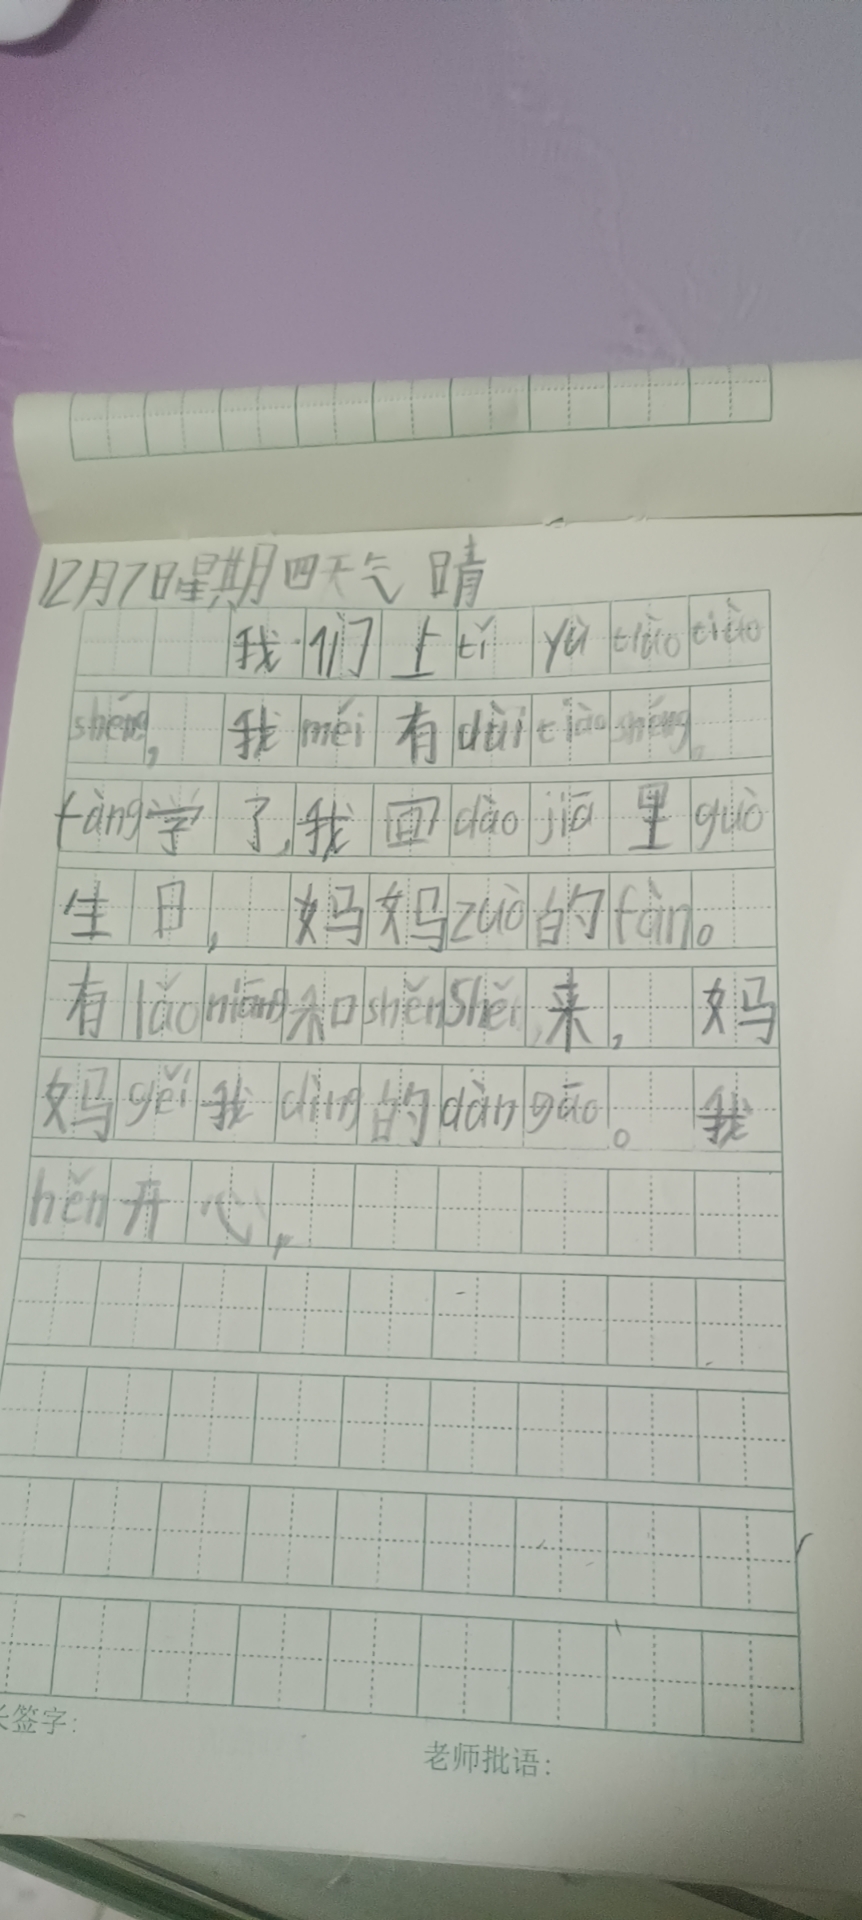 12月7日星期四天气 晴
我们上tǐ yù tiào tiào
shéng, 我méi有duì tiào shéng。
fàng学了,我回dào jiā里guò
生日, 妈妈zuò的fàn。
有lǎo niāng和shěn Shěi来, 妈
妈gěi我dìng的dàn gāo。 我
hěn开心,
长签字:
老师批语: